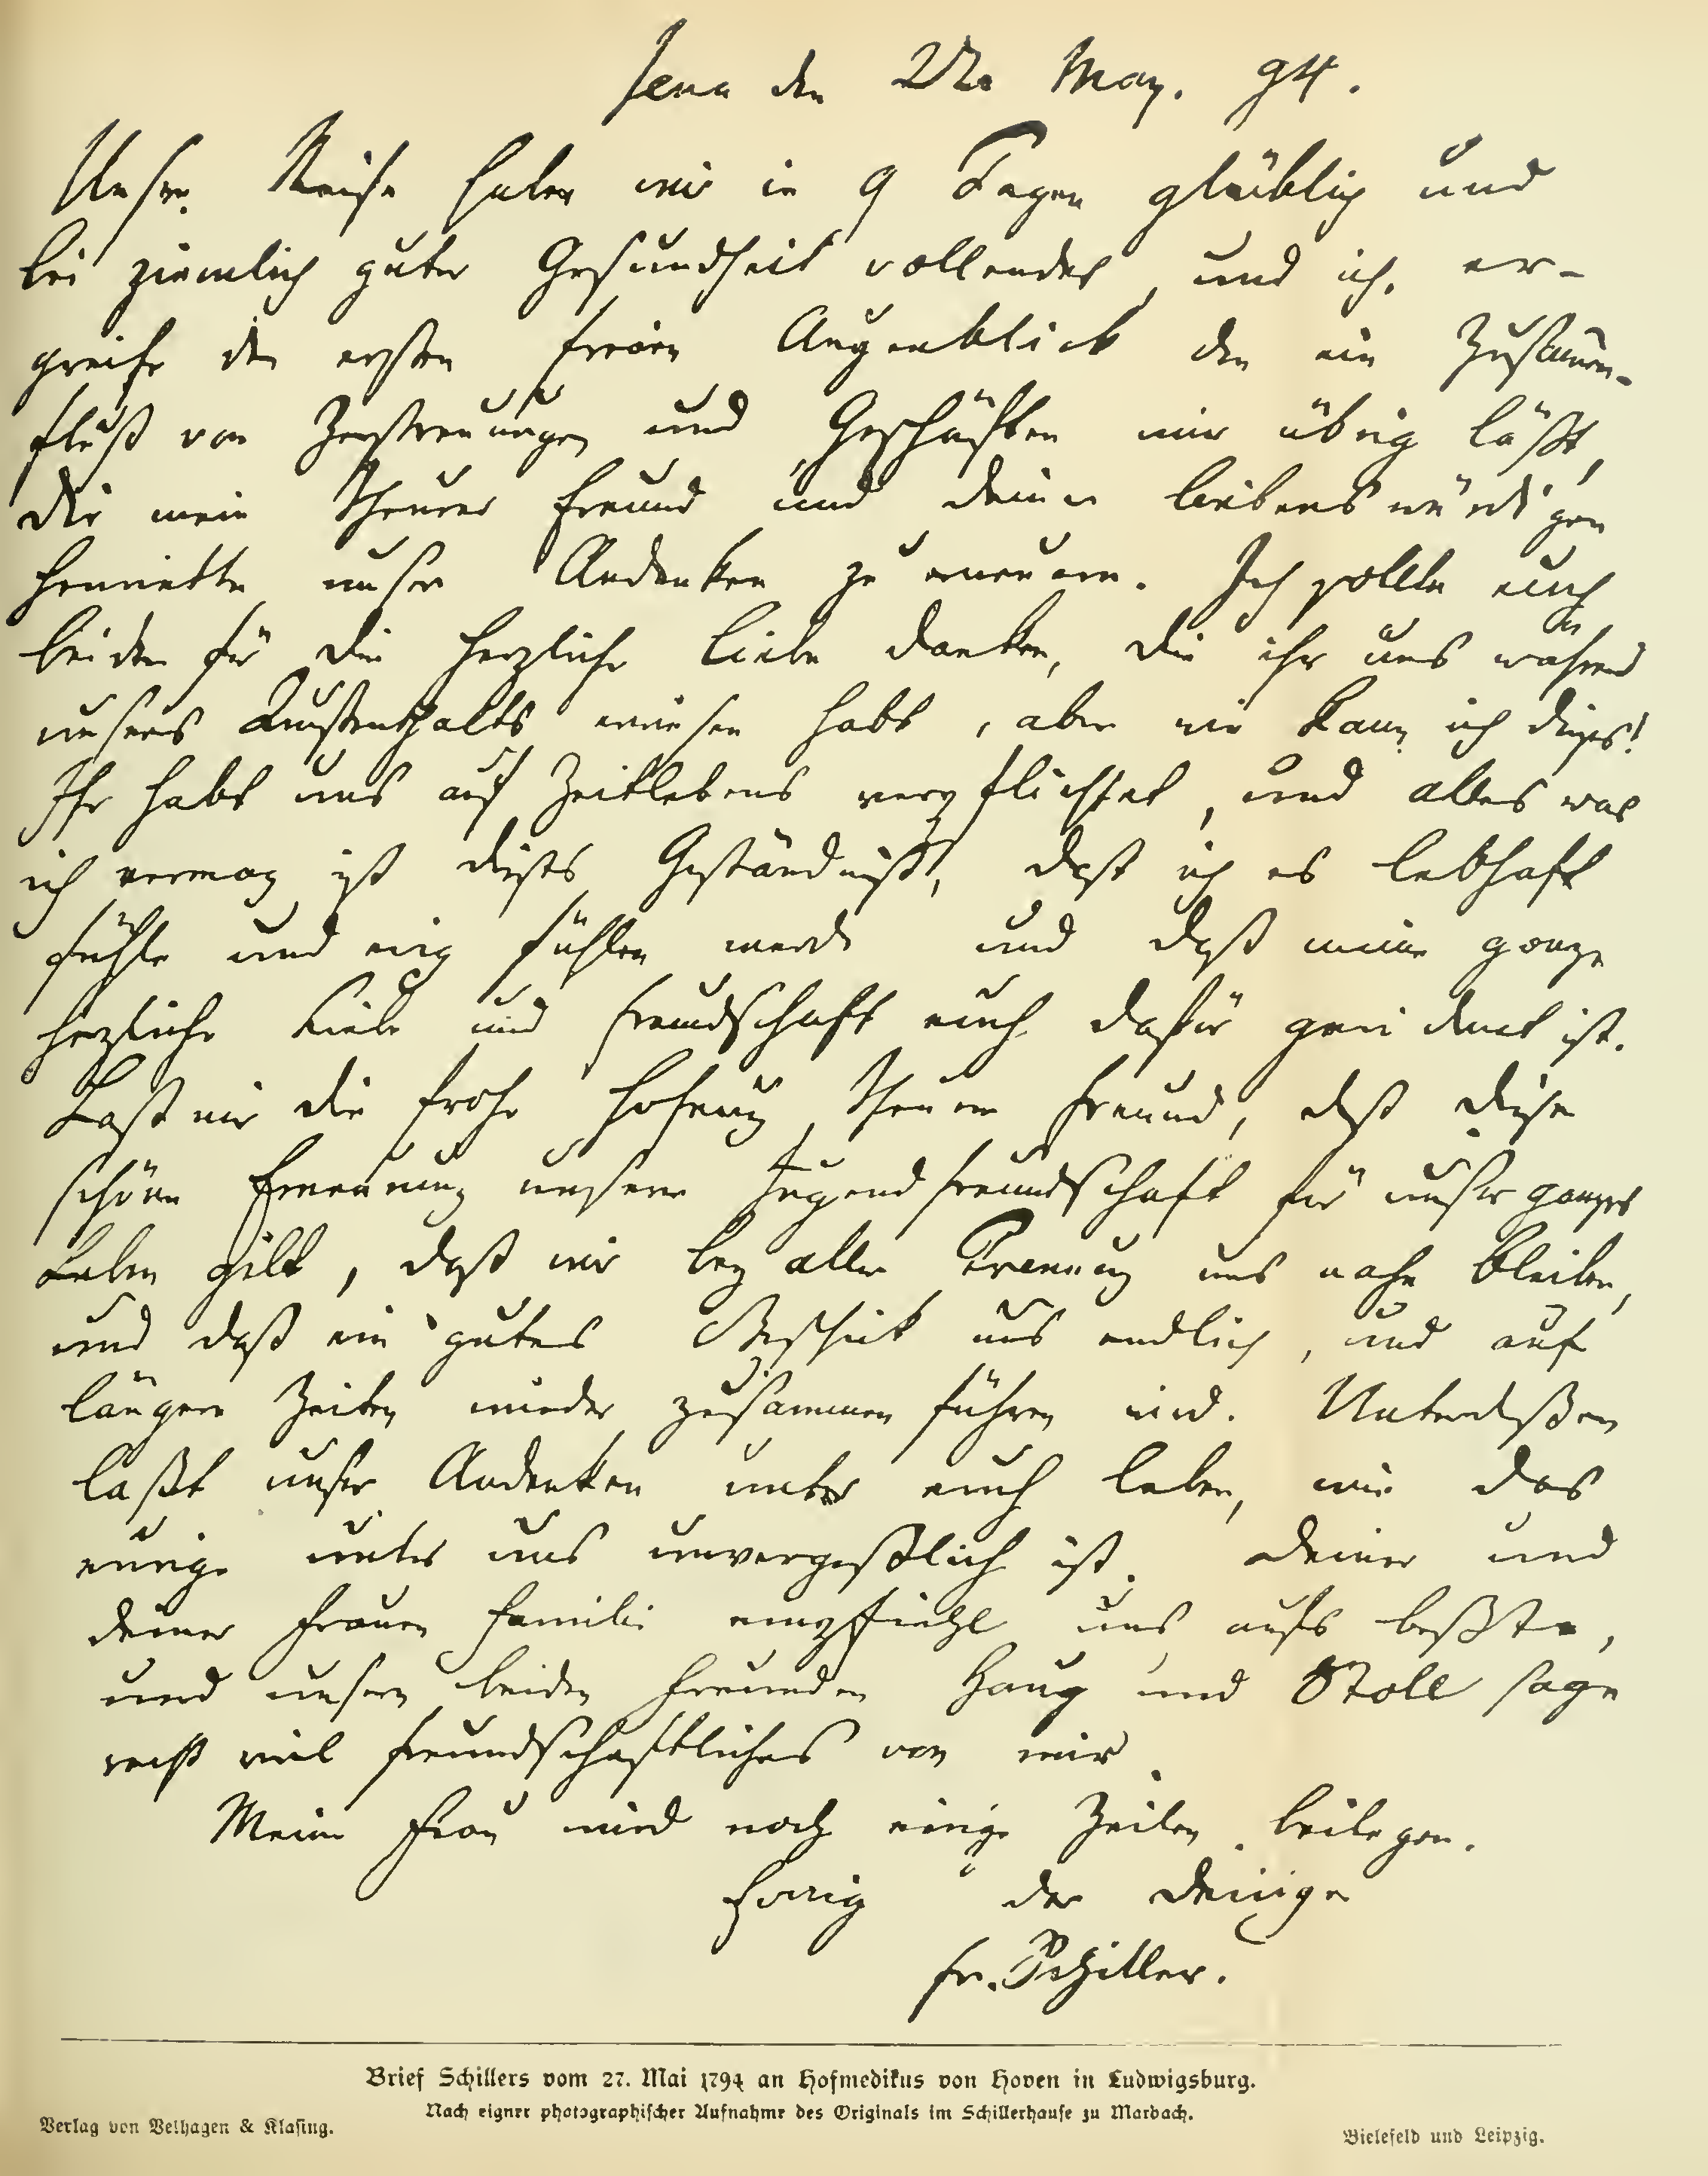 Jena den 27. May. 94.
Unsre Reise haben wir in 9 Tagen glüklich und
bei ziemlich guter Gesundheit vollendet, und ich er-
greife den ersten freien Augenblick den ein Zusam̅en-
fluß von Zerstreuungen und Geschäften mir übrig läßt,
Dir mein theurer Freund und deiner liebenswürdigen
Henriette unser Andenken zu erneuern. Ich sollte euch
beiden für die herzliche Liebe danken, die ihr uns während
unsers Auffenthalts erwiesen habt, aber wie kann ich dieses!
Ihr habt uns auf Zeitlebens verpflichtet, und alles was
ich vermag ist dieses Geständniß, daß ich es lebhaft
fühle und ewig fühlen werde und daß meine ganze
herzliche Liebe und Freundschaft euch dafür gewidmet ist.
Laß mir die frohe Hofnung theurer Freund, daß diese
schöne Erneurung unserer Jugendfreundschaft für unser ganzes
Leben gilt, daß wir bey aller Trennung uns nahe bleiben,
und daß ein gutes Geschick uns endlich, und auf
längere Zeiten wieder zusammen führen wird. Unterdeßen
laßt unser Andenken unter euch leben, wie das
eurige unter uns unvergeßlich ist. Deiner und
deiner Frauen Familie empfiehl uns aufs beßte,
und unsern beiden Freunden Haug und Stoll sage
recht viel freundschaftliches von mir.
Meine Frau wird noch einige Zeilen beilegen.
Ewig der Deinige
Fr. Schiller.
Brief Schillers vom 27. Mai 1794 an Hofmedikus von Hoven in Ludwigsburg.
Nach eigner photographischer Aufnahme des Originals im Schillerhause zu Marbach.
Verlag von Velhagen & Klasing.
Bielefeld und Leipzig.